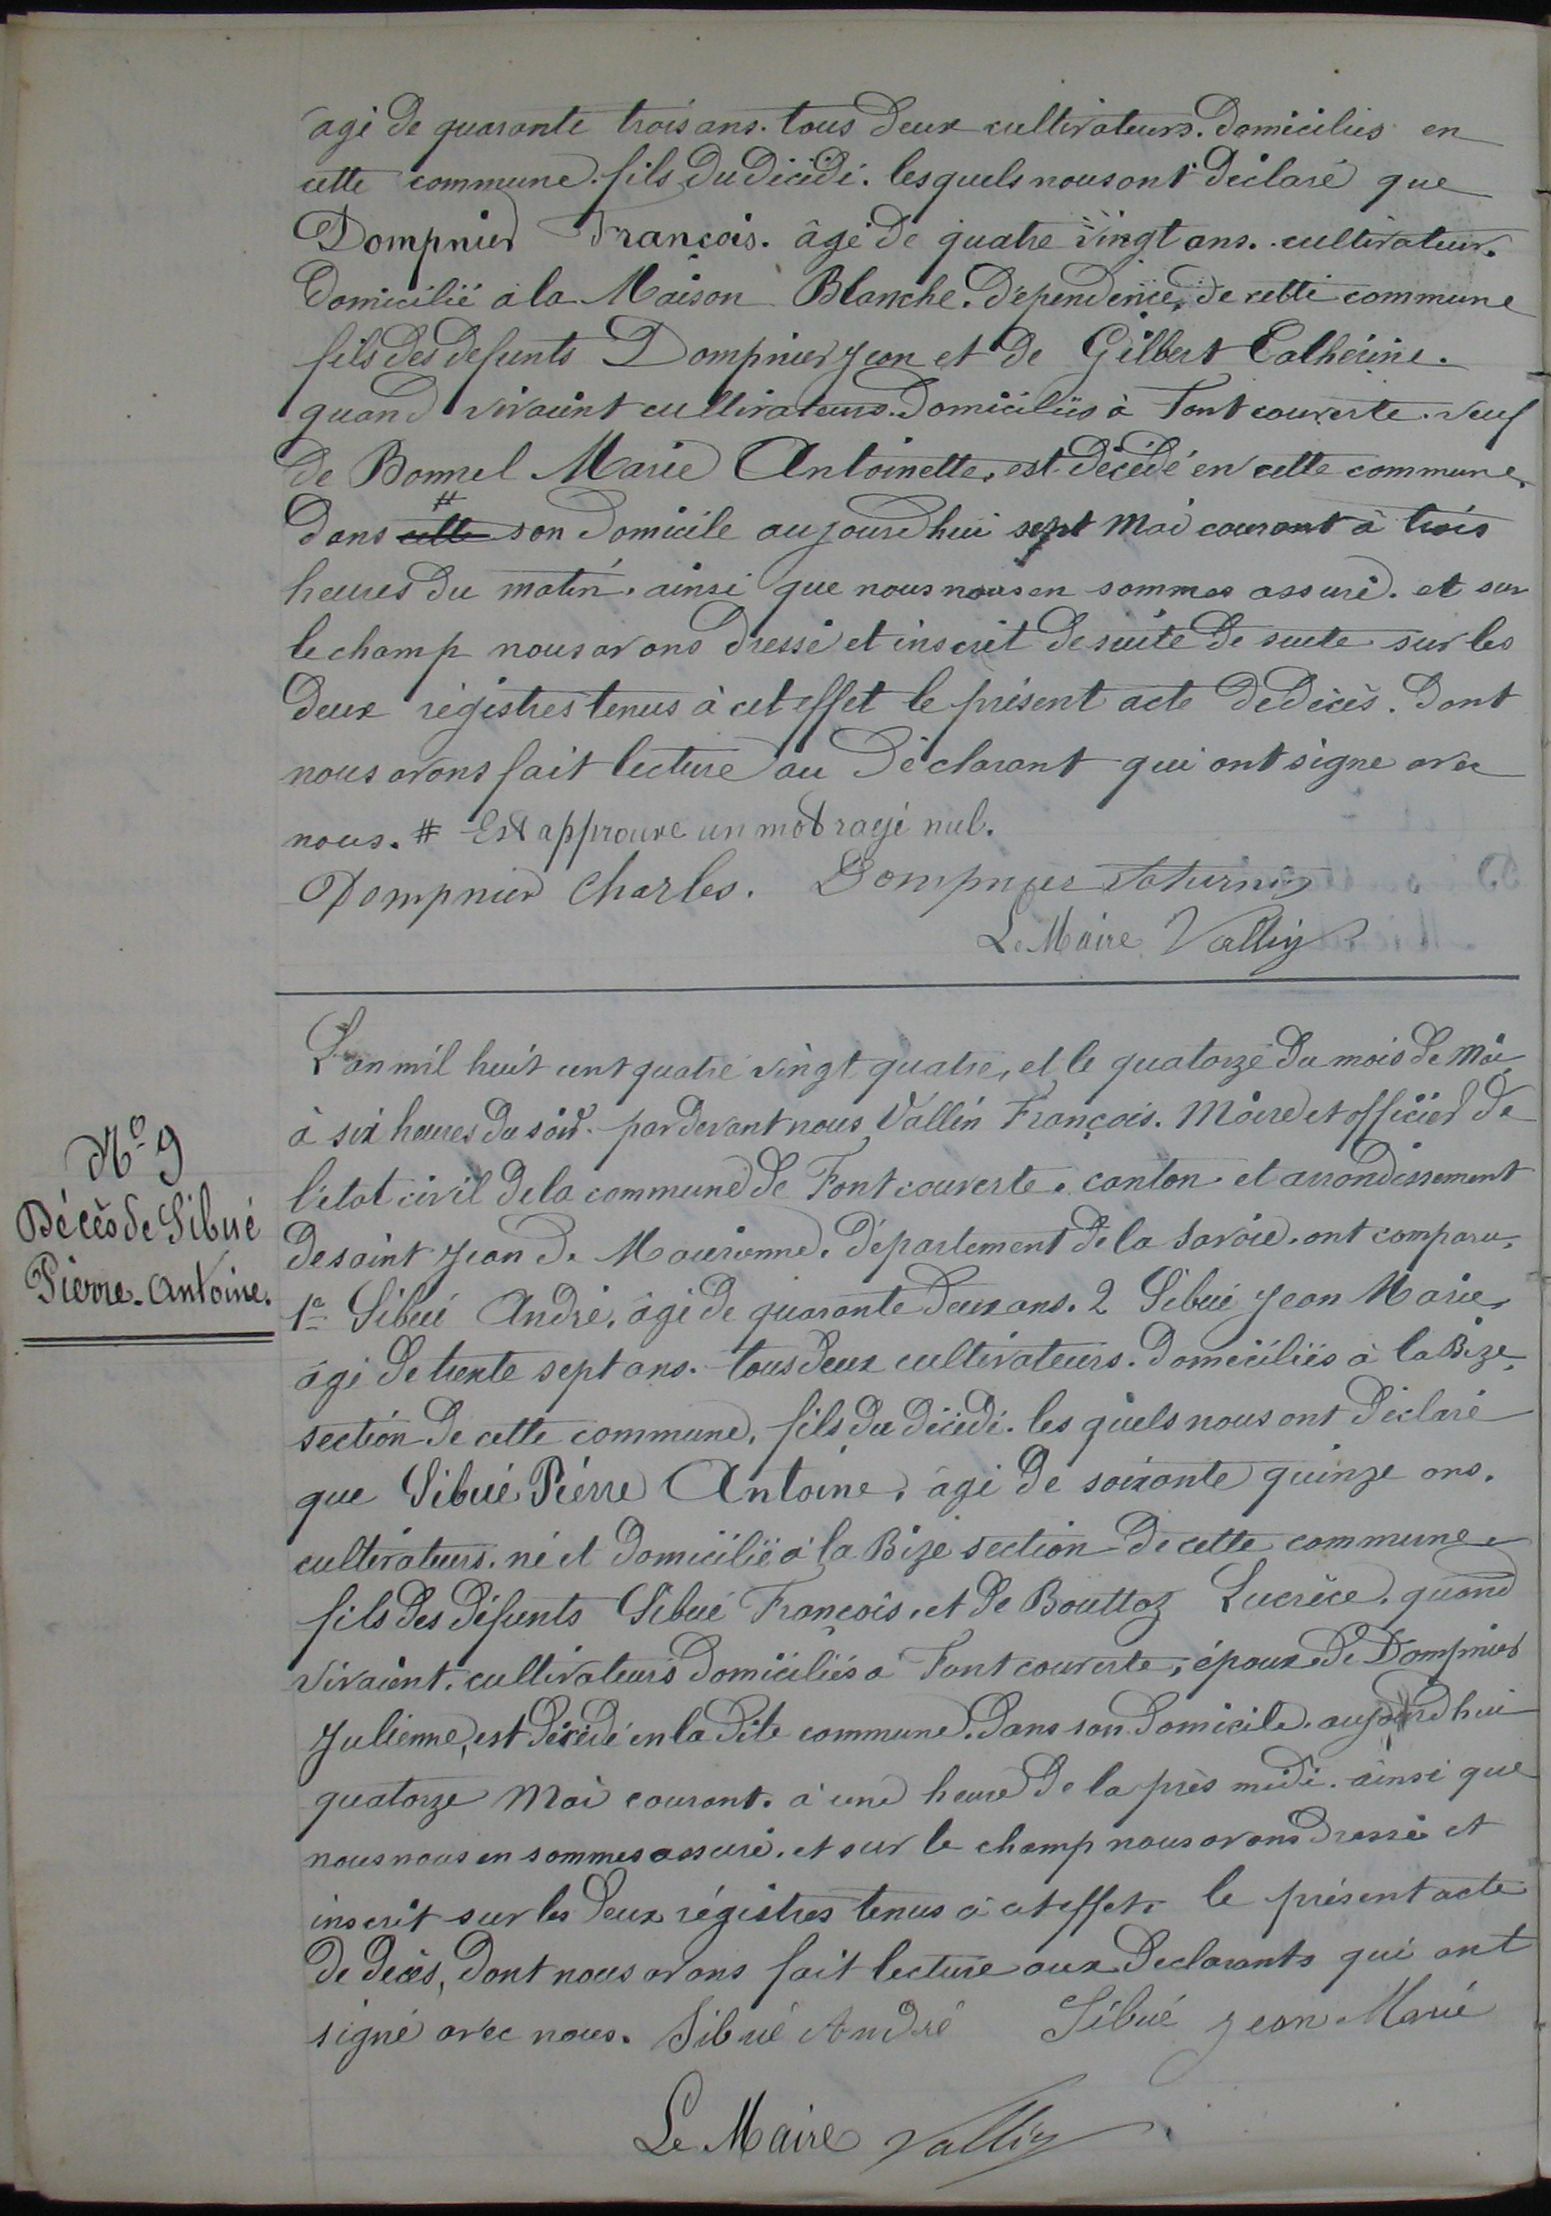 agé de quarante trois ans. tous deux cultivateurs. domiciliés en
cette commune. fils du décédé. lesquels nous ont déclaré que
Dompnier François. âgé de quatre vingt ans. cultivateur.
domicilié à la Maison Blanche. dépendence, de cette commune
fils des defunts Dompnier Jean et de Gilbert Catherine.
quand vivaient cultivateurs. domiciliés à Fontcouverte. veuf
de Bonnel Marie Antoinette, est décédé en cette commune.
#
dans cette son domicile aujourdhui sept Mai courant à trois
heures du matin. ainsi que nous nous en sommes assuré. et sur
le champ nous avons dressé et inscrit de suite de suite sur les
deux régistres tenus à cet effet le présent acte de décès. dont
nous avons fait lecture au déclarant qui ont signe avec
nous. # Est approuve un mot rayé nul.
Dompnier Charles. Dompnier Saturnin
Le Maire Vallin
L'an mil huit cent quatre vingt quatre, et le quatorze du mois de Mai
à six heures du soir. par devant nous Vallin François. Maire et officier de
l'état civil de la commune de Fontcouverte. canton et arrondissement
de saint Jean de Maurienne. département de la Savoie. ont comparu.
N° 9
Décès de Sibué
Pierre-Antoine.
1° Sibué André, âgé de quarante deux ans. 2 Sibué Jean Marie,
âgé de trente sept ans. tous deux cultivateurs. domiciliés à la Bize,
section de cette commune, fils du décédé. les quels nous ont déclaré
que Sibué Pierre Antoine, âgé de soixante quinze ans.
cultivateurs. né et domicilié à la Bize section de cette commune
fils des défunts Sibué François, et de Bouttaz Lucrèce. quand
vivaient. cultivateurs domiciliés à Fontcouverte, époux de Dompnier
Julienne, est décédé en la dite commune. dans son domicile. aujourdhui
quatorze Mai courant. à une heure de la près midi. ainsi que
nous nous en sommes assuré. et sur le champ nous avons dressé et
inscrit sur les deux régistres tenus à cet effet. le présent acte
de décès, dont nous avons fait lecture aux declarants qui ont
signé avec nous. Sibué André Sibué Jean Marie
Le Maire Vallin